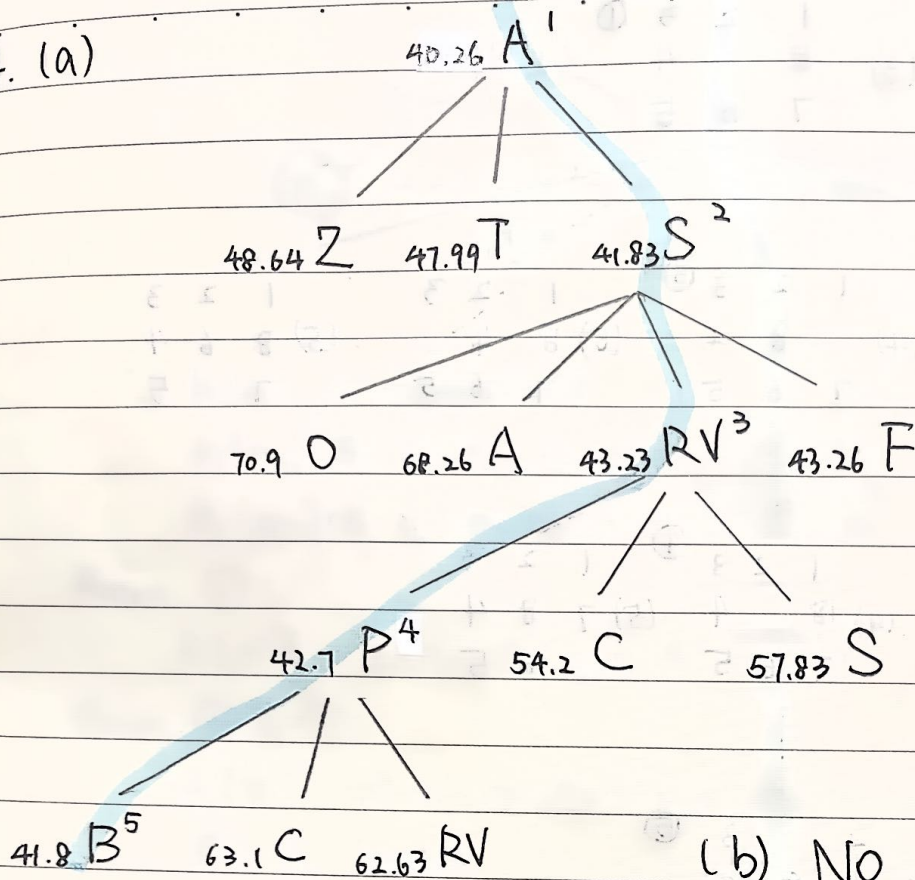 . (a)
40.26 A 1
48.64 Z 47.99 T 41.83 S 2
70.9 O 68.26 A 43.23 RV 3 43.26 F
42.7 P 4 54.2 C 57.83 S
41.8 B 5 63.1 C 62.63 RV
(b) No